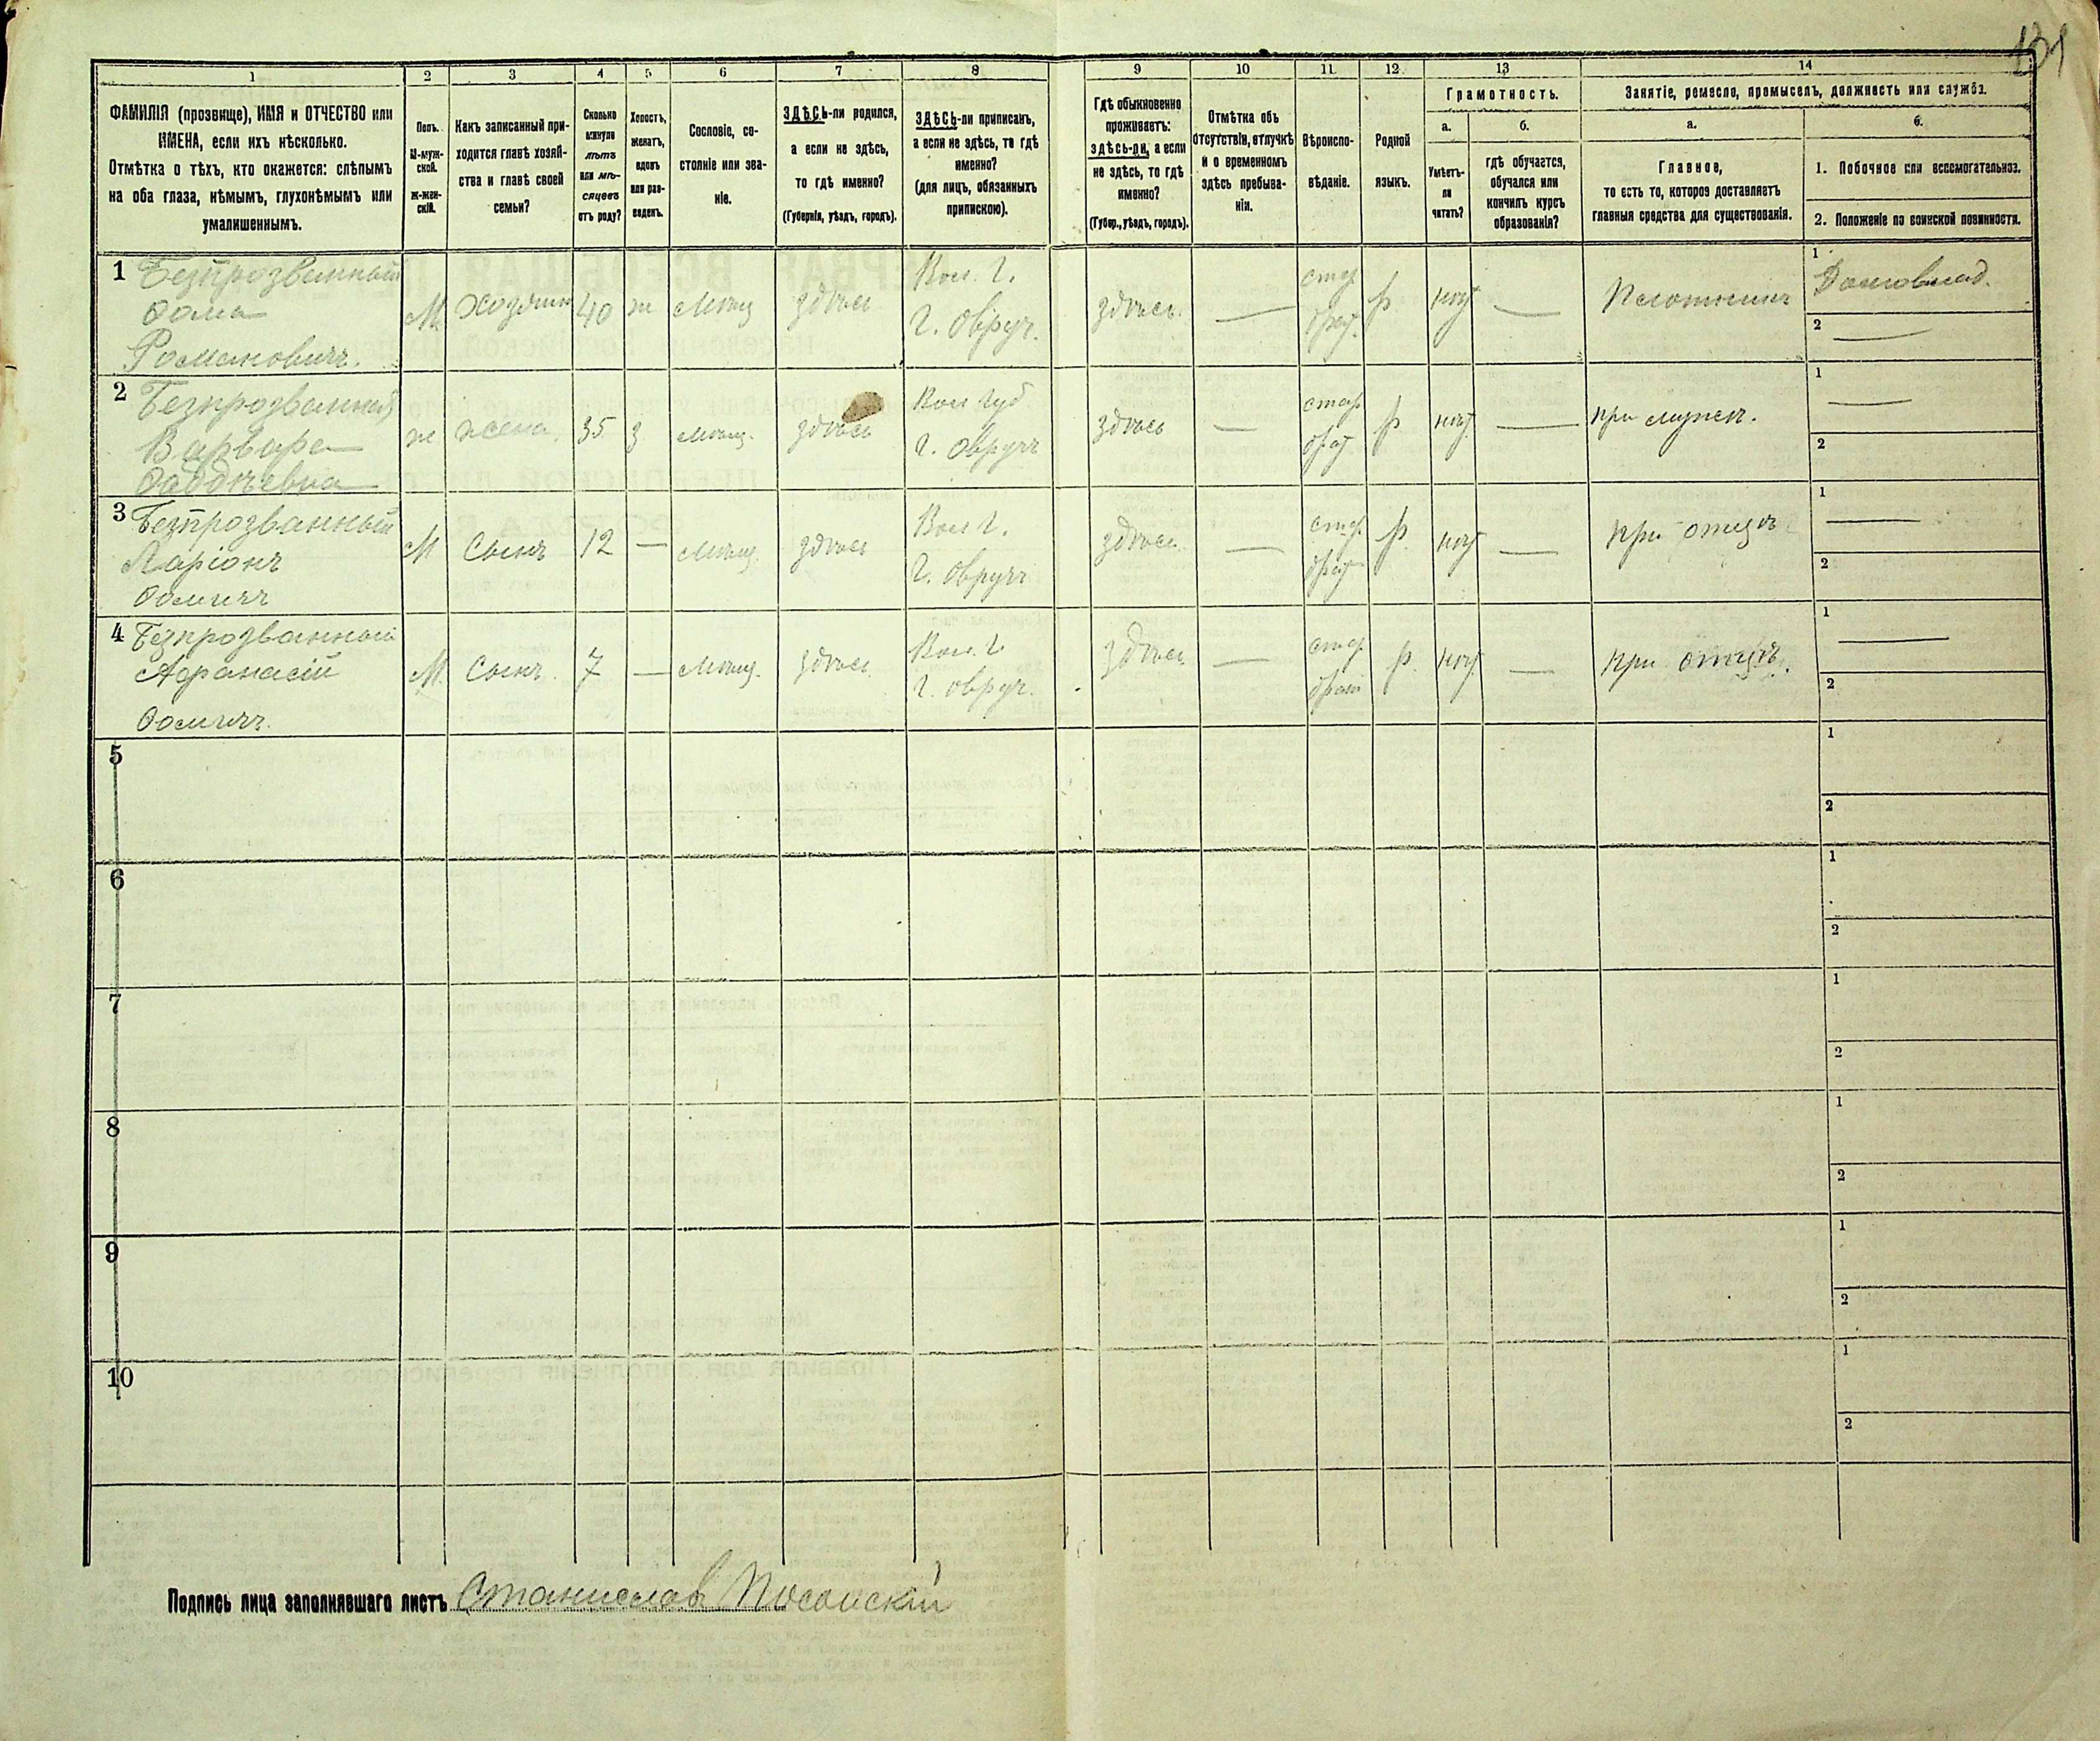 131
1 2 3 4 5 6 7 8 9 10 11 12 13 14
ФАМИЛІЯ (прозвище), ИМЯ и ОТЧЕСТВО или
ИМЕНА, если ихъ нѣсколько.
Отмѣтка о тѣхъ, кто окажется: слѣпымъ
на оба глаза, нѣмымъ, глухонѣмымъ или
умалишеннымъ.
Полъ.
М-муж-
ской.
Ж-жен-
скій.
Какъ записанный при-
ходится главѣ хозяй-
ства и главѣ своей
семьи?
Сколько
минуло
лѣтъ
или мѣ-
сяцевъ
отъ роду?
Холостъ,
женатъ,
вдовъ
или раз-
веденъ.
Сословіе, со-
стояніе или зва-
ніе.
ЗДѢСЬ-ли родился,
а если не здѣсь,
то гдѣ именно?
(Губернія, уѣздъ, городъ).
ЗДѢСЬ-ли приписанъ,
а если не здѣсь, то гдѣ
именно?
(для лицъ, обязанныхъ
припискою).
Гдѣ обыкновенно
проживаетъ:
здѣсь-ли, а если
не здѣсь, то гдѣ
именно?
(Губер., уѣздъ, городъ).
Отмѣтка объ
отсутствіи, отлучкѣ
и о временномъ
здѣсь пребыва-
ніи.
Вѣроиспо-
вѣданіе.
Родной
языкъ.
Грамотность.
а.
Умѣетъ-
ли
читать?
б.
гдѣ обучается,
обучался или
кончилъ курсъ
образованія?
Занятіе, ремесло, промыселъ, должность или служба.
а.
Главное,
то есть то, которое доставляетъ
главныя средства для существованія.
б.
1. Побочное или вспомогательное.
2. Положеніе по воинской повинности.
1 Безпрозванный
Ѳома
Романовичъ.
М Хозяин 40 ж Мѣщ здѣсь
Вол. Г.
г. Овруч.
здѣсь. — р нѣт —
1 Домовлад.
2 —
2 Безпрозванная
Варвара
Ѳаддѣевна
ж жена 35 з мѣщ. здѣсь
Вол Губ
г. Овручъ
здѣсь — р нѣт — при мужѣ.
1 —
2
3 Безпрозванный
Ларіонъ
Ѳомичъ
М Сынъ 12 — Мѣщ. здѣсь
Вол Г.
г. Овручъ
здѣсь — р. нѣт — при отцѣ
1 —
2
4 Безпрозванный
Афанасій
Ѳомичъ.
М. Сынъ. 7 — Мѣщ. здѣсь.
Вол. Г
г. Овруч.
здѣсь — р. нѣт — при отцѣ.
1 —
2
5 1
2
6 1
2
7 1
2
8 1
2
9 1
2
10 1
2
Подпись лица заполнявшаго листъ Станислав